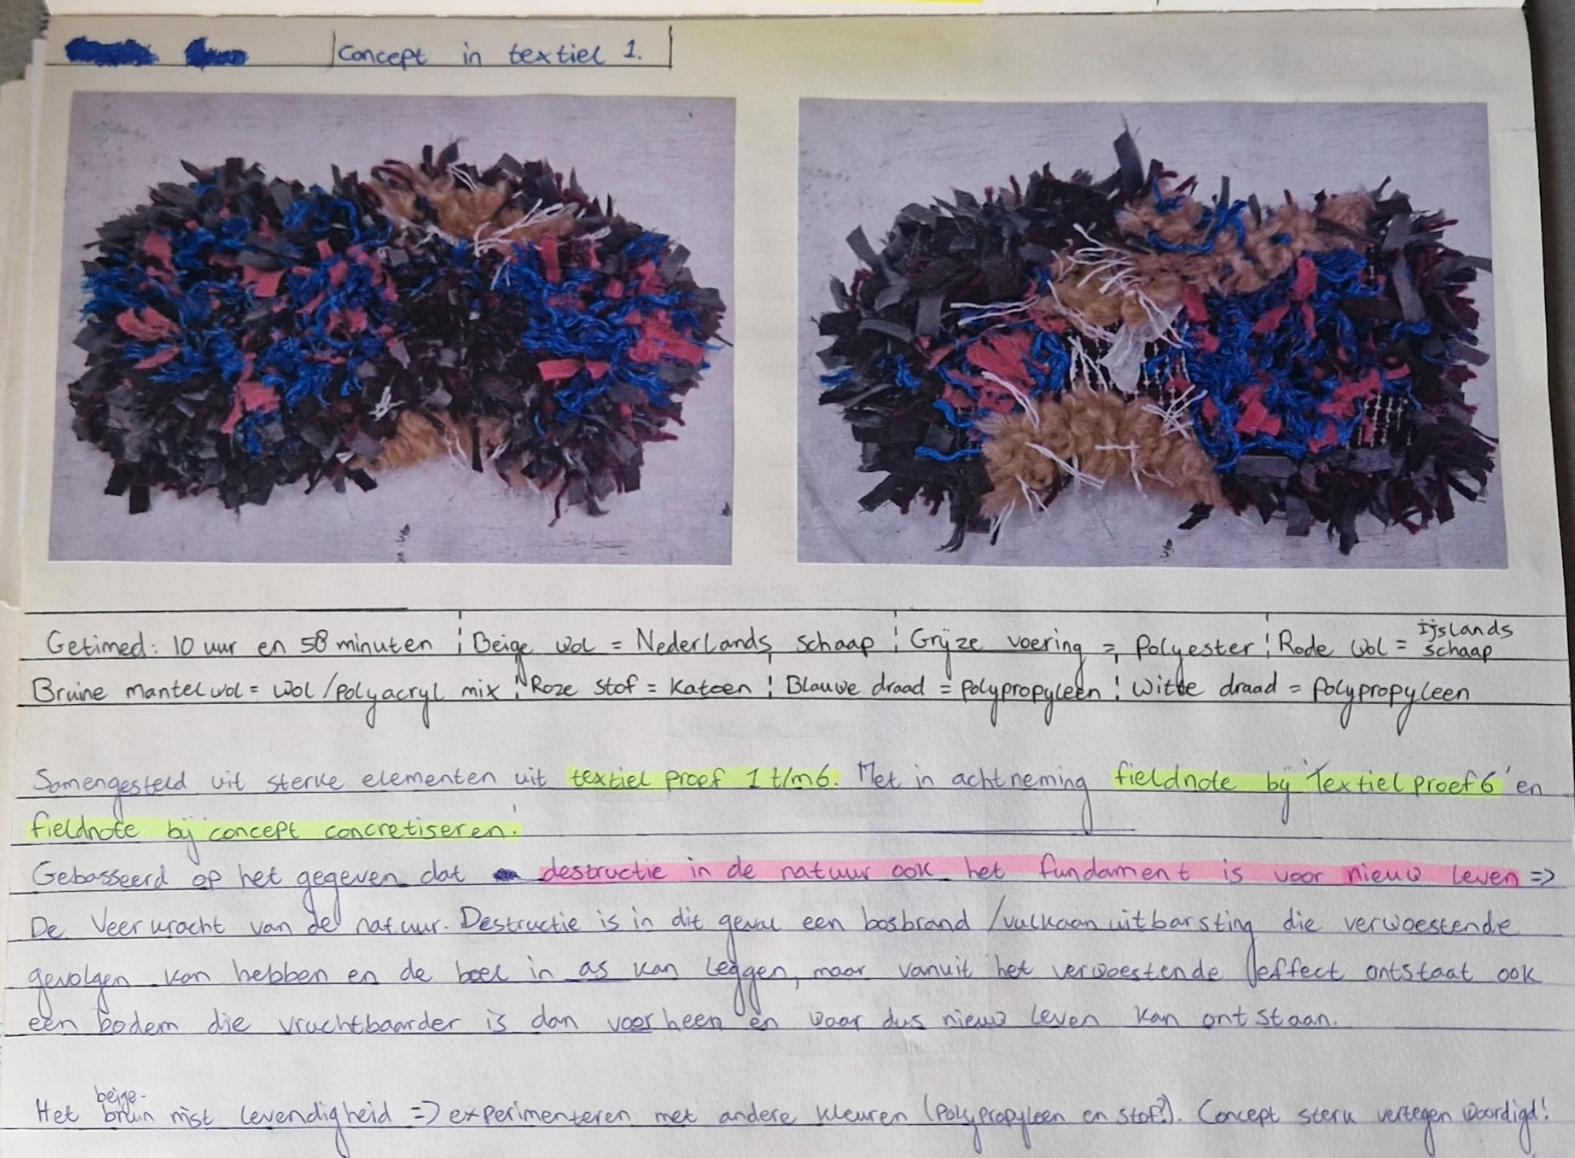 Concept in textiel 1.
Getimed: 10 uur en 58 minuten ¦ Beige wol = Nederlands schaap ¦ Grijze voering = Polyester ¦ Rode wol = Ijslands schaap
Bruine mantelwol = wol / polyacryl mix ¦ Roze stof = Katoen ¦ Blauwe draad = polypropyleen ¦ Witte draad = polypropyleen
Samengesteld uit sterke elementen uit textiel proef 1 t/m 6. Met in achtneming fieldnote bij 'Textiel proef 6' en
fieldnote bij 'concept concretiseren.'
Gebasseerd op het gegeven dat destructie in de natuur ook het fundament is voor nieuw leven =>
De Veerkracht van de natuur. Destructie is in dit geval een bosbrand / vulkaanuitbarsting die verwoestende
gevolgen kan hebben en de boel in as kan leggen, maar vanuit het verwoestende effect ontstaat ook
een bodem die vruchtbaarder is dan voorheen en waar dus nieuw leven kan ontstaan.
Het beige-bruin mist levendigheid => experimenteren met andere kleuren (polypropyleen en stof?). Concept sterk vertegenwoordigd!